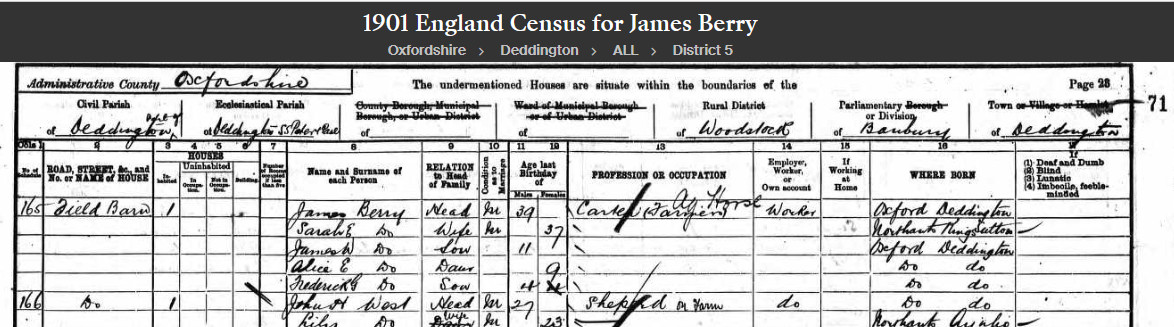 1901 England Census for James Berry
Oxfordshire > Deddington > ALL > District 5
Administrative County Oxfordshire The undermentioned Houses are situate within the boundaries of the Page 23
71
Civil Parish Ecclesiastical Parish County Borough, Municipal Borough, or Urban District Ward of Municipal Borough or of Urban District Rural District Parliamentary Borough or Division Town or Village or Hamlet
of Deddington of Deddington SS Peter & Paul of of of Woodstock of Banbury of Deddington
2 3 4 5 6 7 8 9 10 11 12 13 14 15 16
No. of Schedule ROAD, STREET, &c., and No. or NAME of HOUSE HOUSES Inhabited Uninhabited In Occupation. Not in Occupation. Building Number of Rooms occupied if less than five Name and Surname of each Person RELATION to Head of Family Condition as to Marriage Age last Birthday of Males Females PROFESSION OR OCCUPATION Employer, Worker, or Own account If Working at Home WHERE BORN If (1) Deaf and Dumb (2) Blind (3) Lunatic (4) Imbecile, feeble-minded
165 Field Barn 1 James Berry Head M 39 Carter (Farm) Ag Horse Worker Oxford Deddington
Sarah E Do Wife M 37 Northants Kings Sutton
James W Do Son 11 Oxford Deddington
Alice E Do Daur 9 Do do
Frederick G Do Son 4 Do do
166 Do 1 John H West Head M 27 Shepherd on Farm do Do do
Do Wife M 23 Northants Aynho